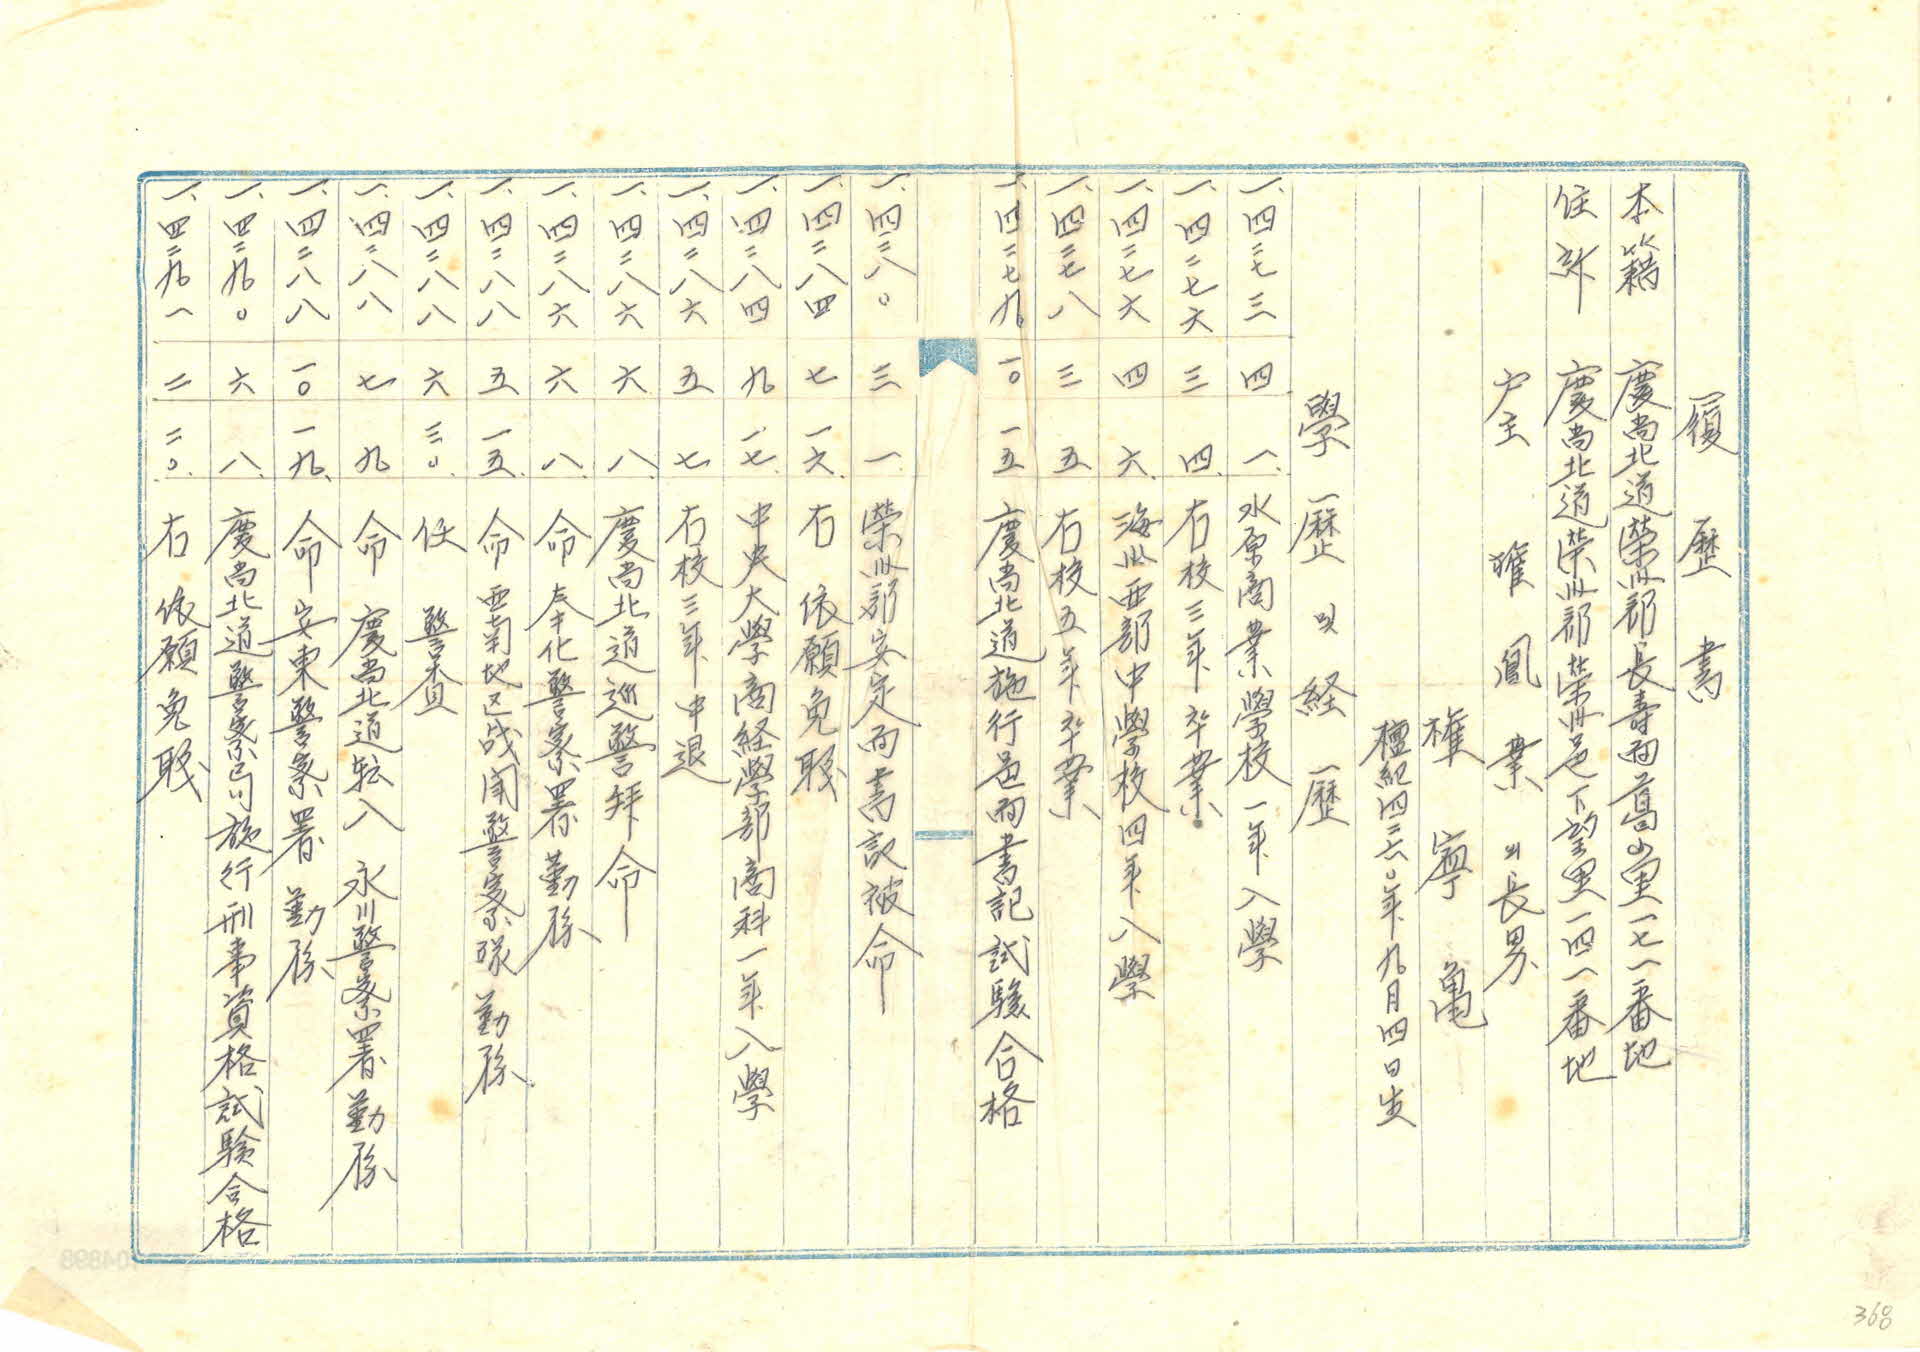 履歷書
本籍 慶尚北道榮州郡長壽面葛山里一七一番地
住所 慶尚北道榮州郡榮州邑下望里一四一番地
戶主 權鳳業의長男
權寧亀
檀紀四二六〇年九月四日生
學歷 및 経歷
一、四二七三 四 一、水原商業學校一年入學
一、四二七六 三 四、右校三年卒業
一、四二七六 四 六、海州西部中學校四年入學
一、四二七八 三 五、右校五年卒業
一、四二七九、一〇 一五、慶尚北道施行邑面書記試驗合格
一、四二八〇 三 一、榮州郡安定面書記被命
一、四二八四 七 一六、右 依願免職
一、四二八四 九 一七、中央大學商経學部商科一年入學
一、四二八六 五 七 右校三年中退
一、四二八六 六 八、慶尚北道巡警拜命
一、四二八六 六 八、命奉化警察署勤務
一、四二八八 五 一五、命西南地区战闘警察隊勤務
一、四二八八 六 三〇、任 警査
一、四二八八 七 九 命 慶尚北道転入 永川警察署勤務
一、四二八八 一〇 一九、命安東警察署 勤務
一、四二九〇 六 八、慶尚北道警察局施行刑事資格試験合格
一、四二九一 二 二〇、右依願免職
368